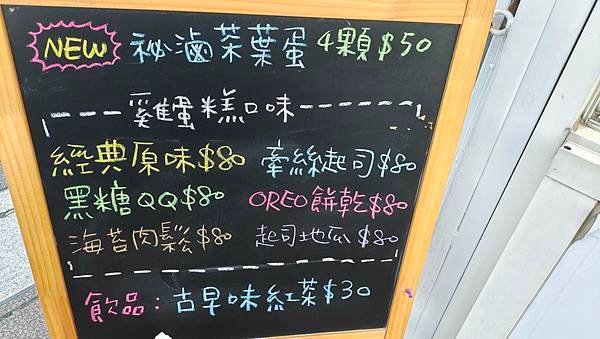 NEW 祕滷茶葉蛋 4顆$50
雞蛋糕口味
經典原味$80 牽絲起司$80
黑糖QQ$80 OREO餅乾$80
海苔肉鬆$80 起司地瓜$80
飲品：古早味紅茶$30